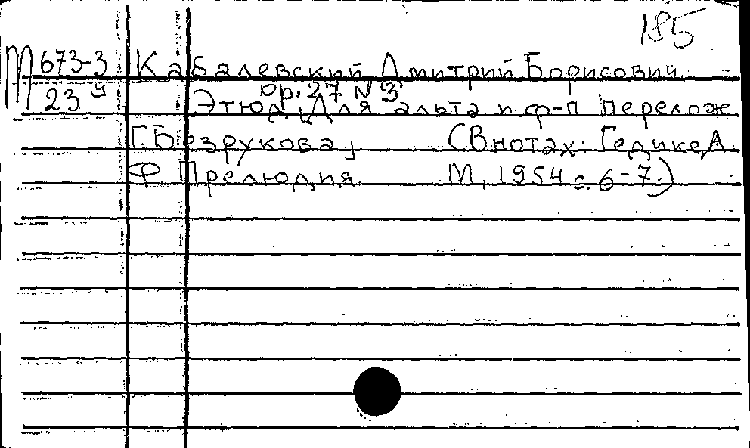 185
М 673-3 Кабалевский Дмитрий Борисович
23 Этюд, Op. 27 N 3 Для альта и ф-п перелож
Г. Безрукова, (В нотах: Гедике А.
Ф Прелюдия. М, 1954 с. 6-7.)